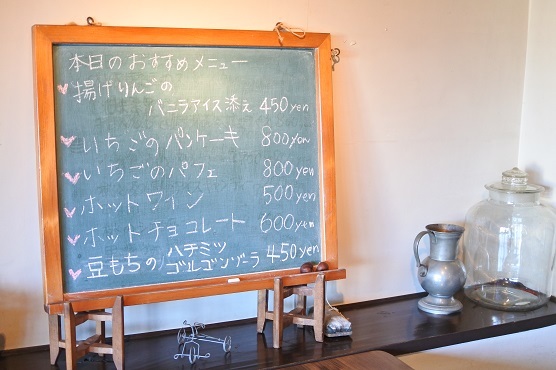 本日のおすすめメニュー
揚げりんごの
バニラアイス添え 450yen
いちごのパンケーキ 800yen
いちごのパフェ 800yen
ホットワイン 500yen
ホットチョコレート 600yen
豆もちの ハチミツ
ゴルゴンゾーラ 450yen